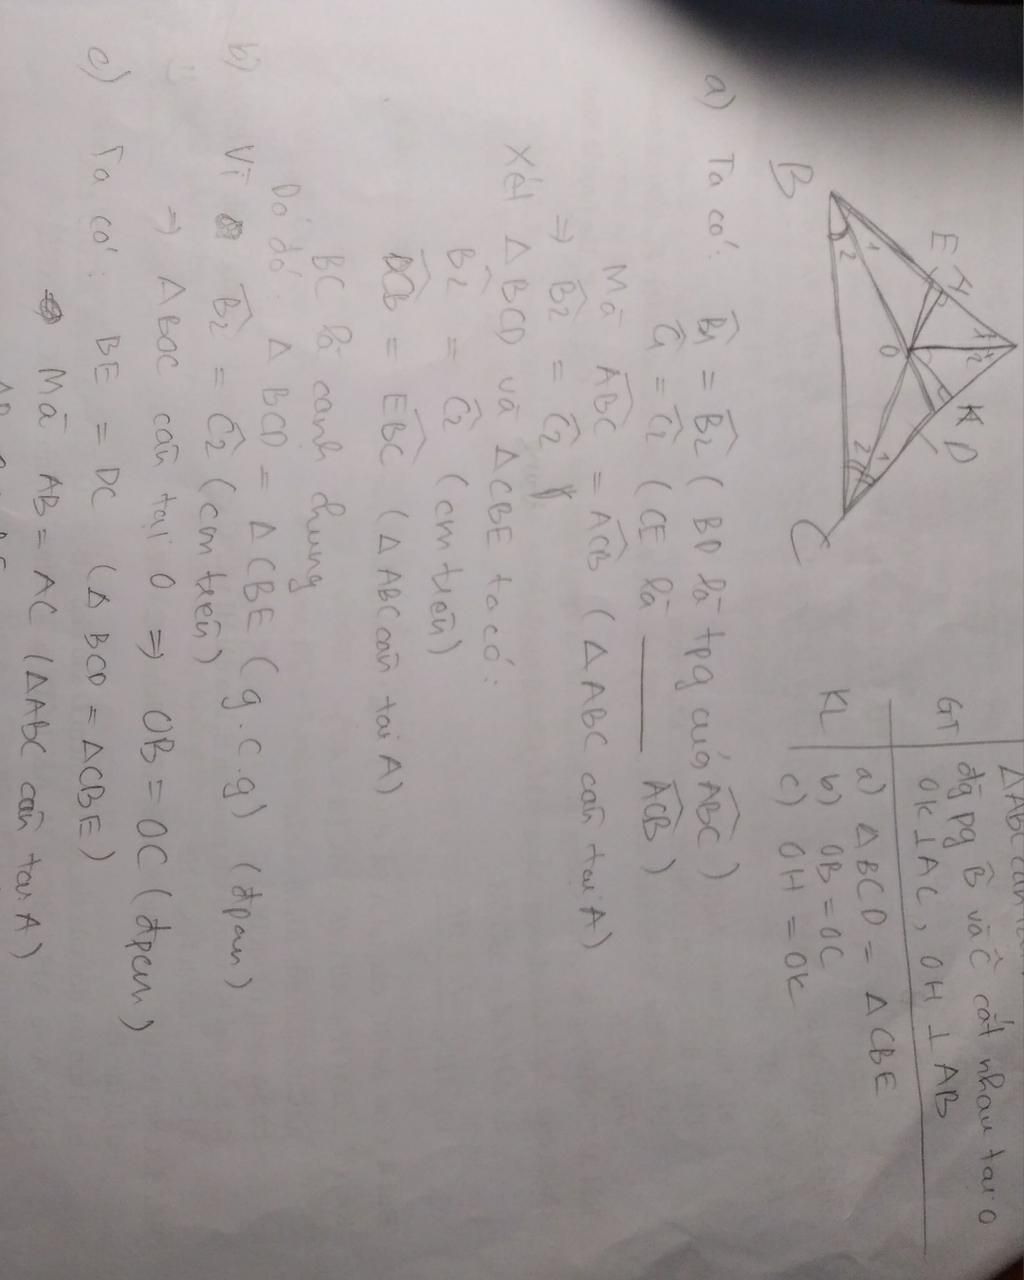 ΔABC cân
GT đg pg B̂ và Ĉ cắt nhau tại O
OK ⊥ AC, OH ⊥ AB
a) ΔBCD = ΔCBE
KL b) OB = OC
c) OH = OK
E H 1 2 K D
B 1 2 O 1 2 C
a) Ta có: B̂1 = B̂2 (BD là tpg của ABC)
Ĉ1 = Ĉ2 (CE là ——— ACB)
Mà ABC = ACB (ΔABC cân tại A)
=> B̂2 = Ĉ2
Xét ΔBCD và ΔCBE ta có:
B̂2 = Ĉ2 (cm trên)
DCB = EBC (ΔABC cân tại A)
BC là cạnh chung
Do đó: ΔBCD = ΔCBE (g.c.g) (đpcm)
b) Vì B̂2 = Ĉ2 (cm trên)
=> ΔBOC cân tại O => OB = OC (đpcm)
c) Ta có: BE = DC (ΔBCD = ΔCBE)
Mà AB = AC (ΔABC cân tại A)